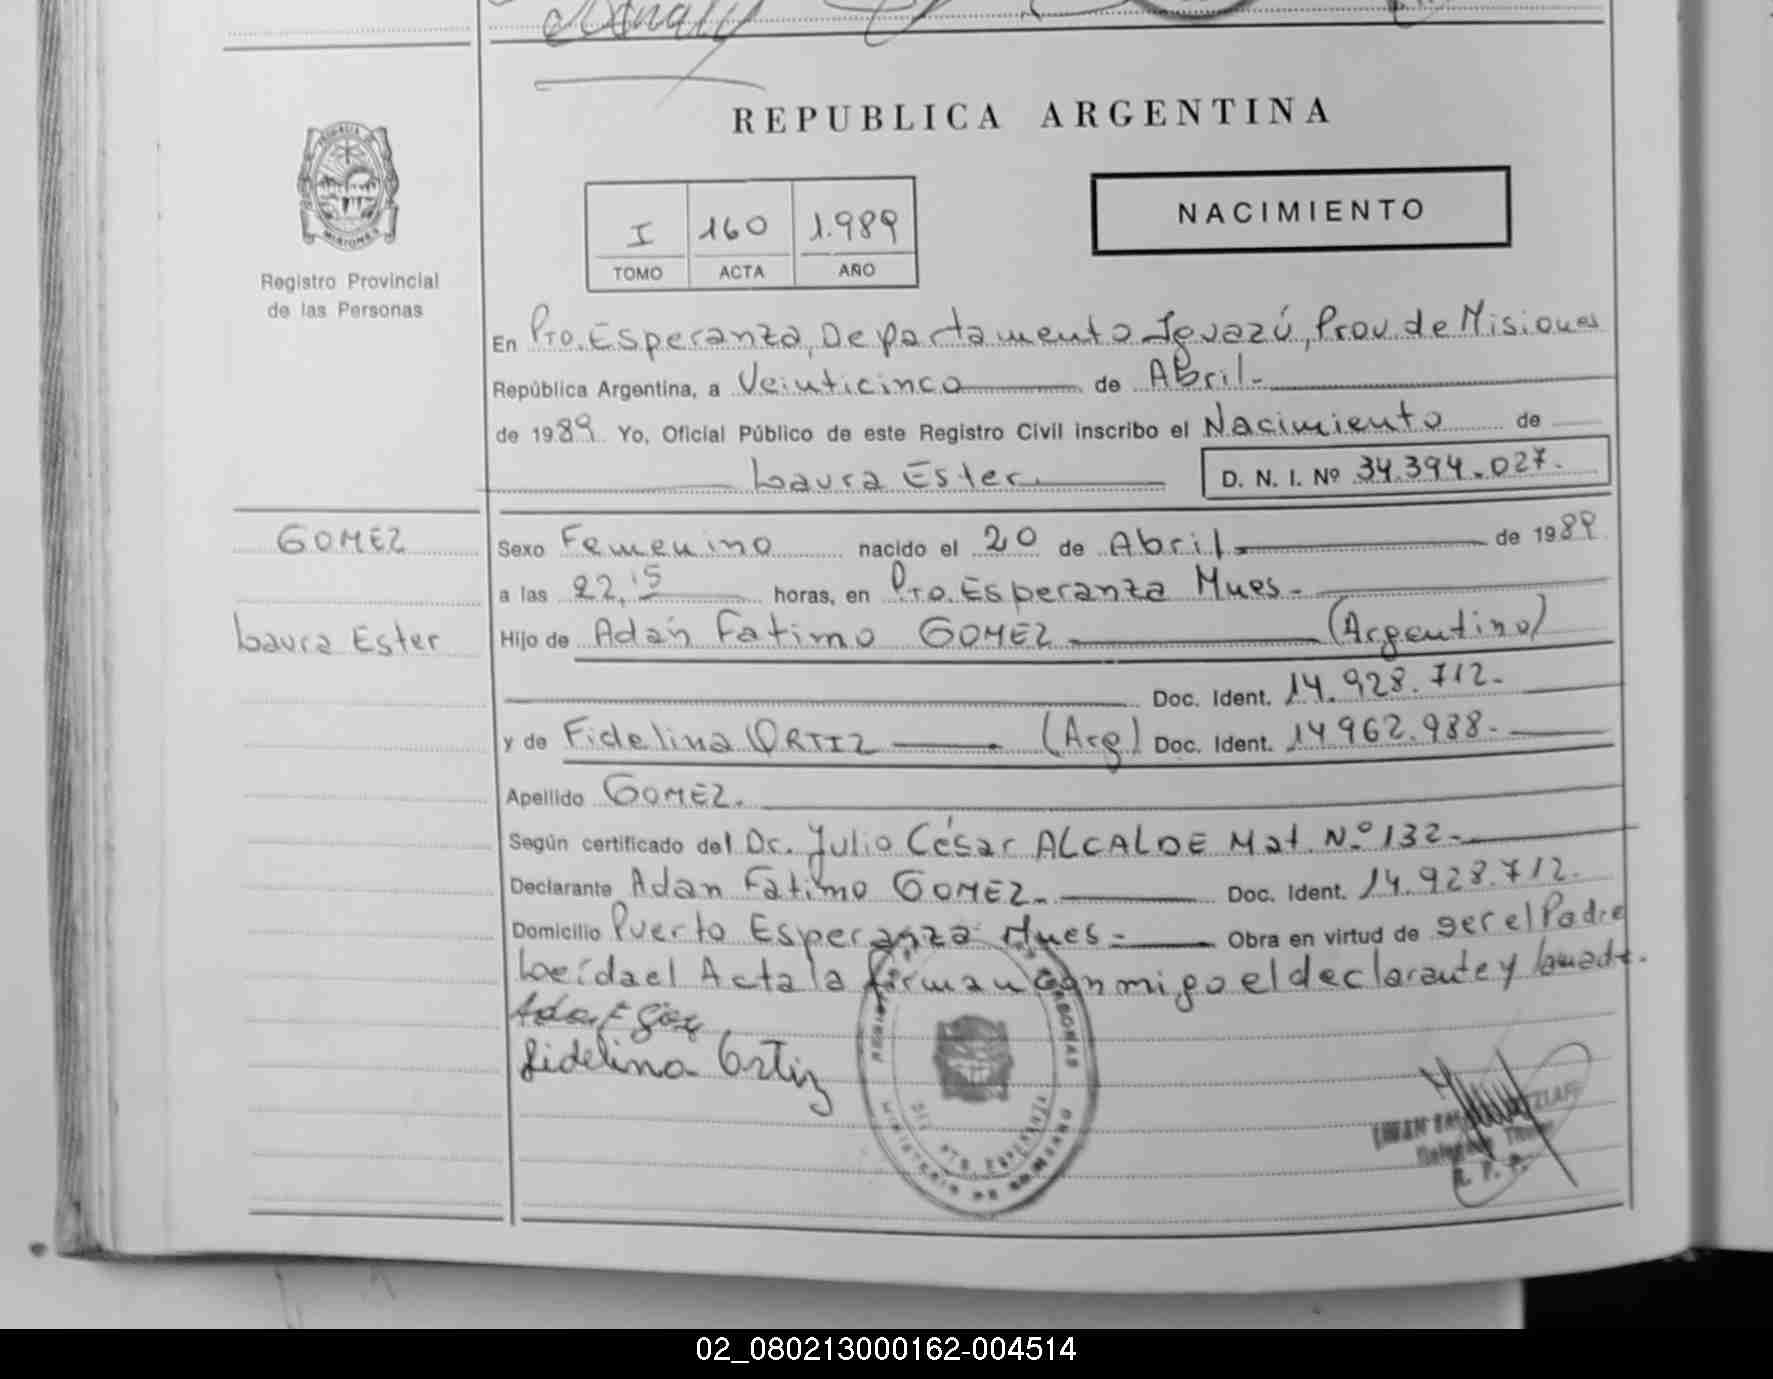 REPUBLICA ARGENTINA
MISIONES
Registro Provincial
de las Personas
I 160 1.989
TOMO ACTA AÑO
NACIMIENTO
En Pto. Esperanza, Departamento Iguazú, Prov. de Misiones
República Argentina, a Veinticinco de Abril.-
de 1989 Yo, Oficial Público de este Registro Civil inscribo el Nacimiento de
Laura Ester. D. N. I. Nº 34.394.027.
GOMEZ
Laura Ester
Sexo Femenino nacido el 20 de Abril.- de 1989
a las 22,15 horas, en Pto. Esperanza Mnes.-
Hijo de Adán Fatimo GOMEZ (Argentino)
Doc. Ident. 14.928.712.-
y de Fidelina ORTIZ (Arg) Doc. Ident. 14962.988.-
Apellido GOMEZ.
Según certificado del Dr. Julio César ALCALDE Mat. Nº 132.-
Declarante Adan Fatimo GOMEZ.- Doc. Ident. 14.928.712.
Domicilio Puerto Esperanza Mnes.- Obra en virtud de ser el Padre
Leída el Acta la firman conmigo el declarante y la madre.
Fidelina Ortiz
MINISTERIO DE GOBIERNO
PTO. ESPERANZA
R. P. P.
02_080213000162-004514